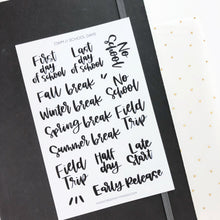 SCHOOL DAYS
First day of school
Last day of school
No School
Fall break
No School
Winter break
Spring break
Field Trip
Summer break
Field Trip
Half day
Late Start
Early Release